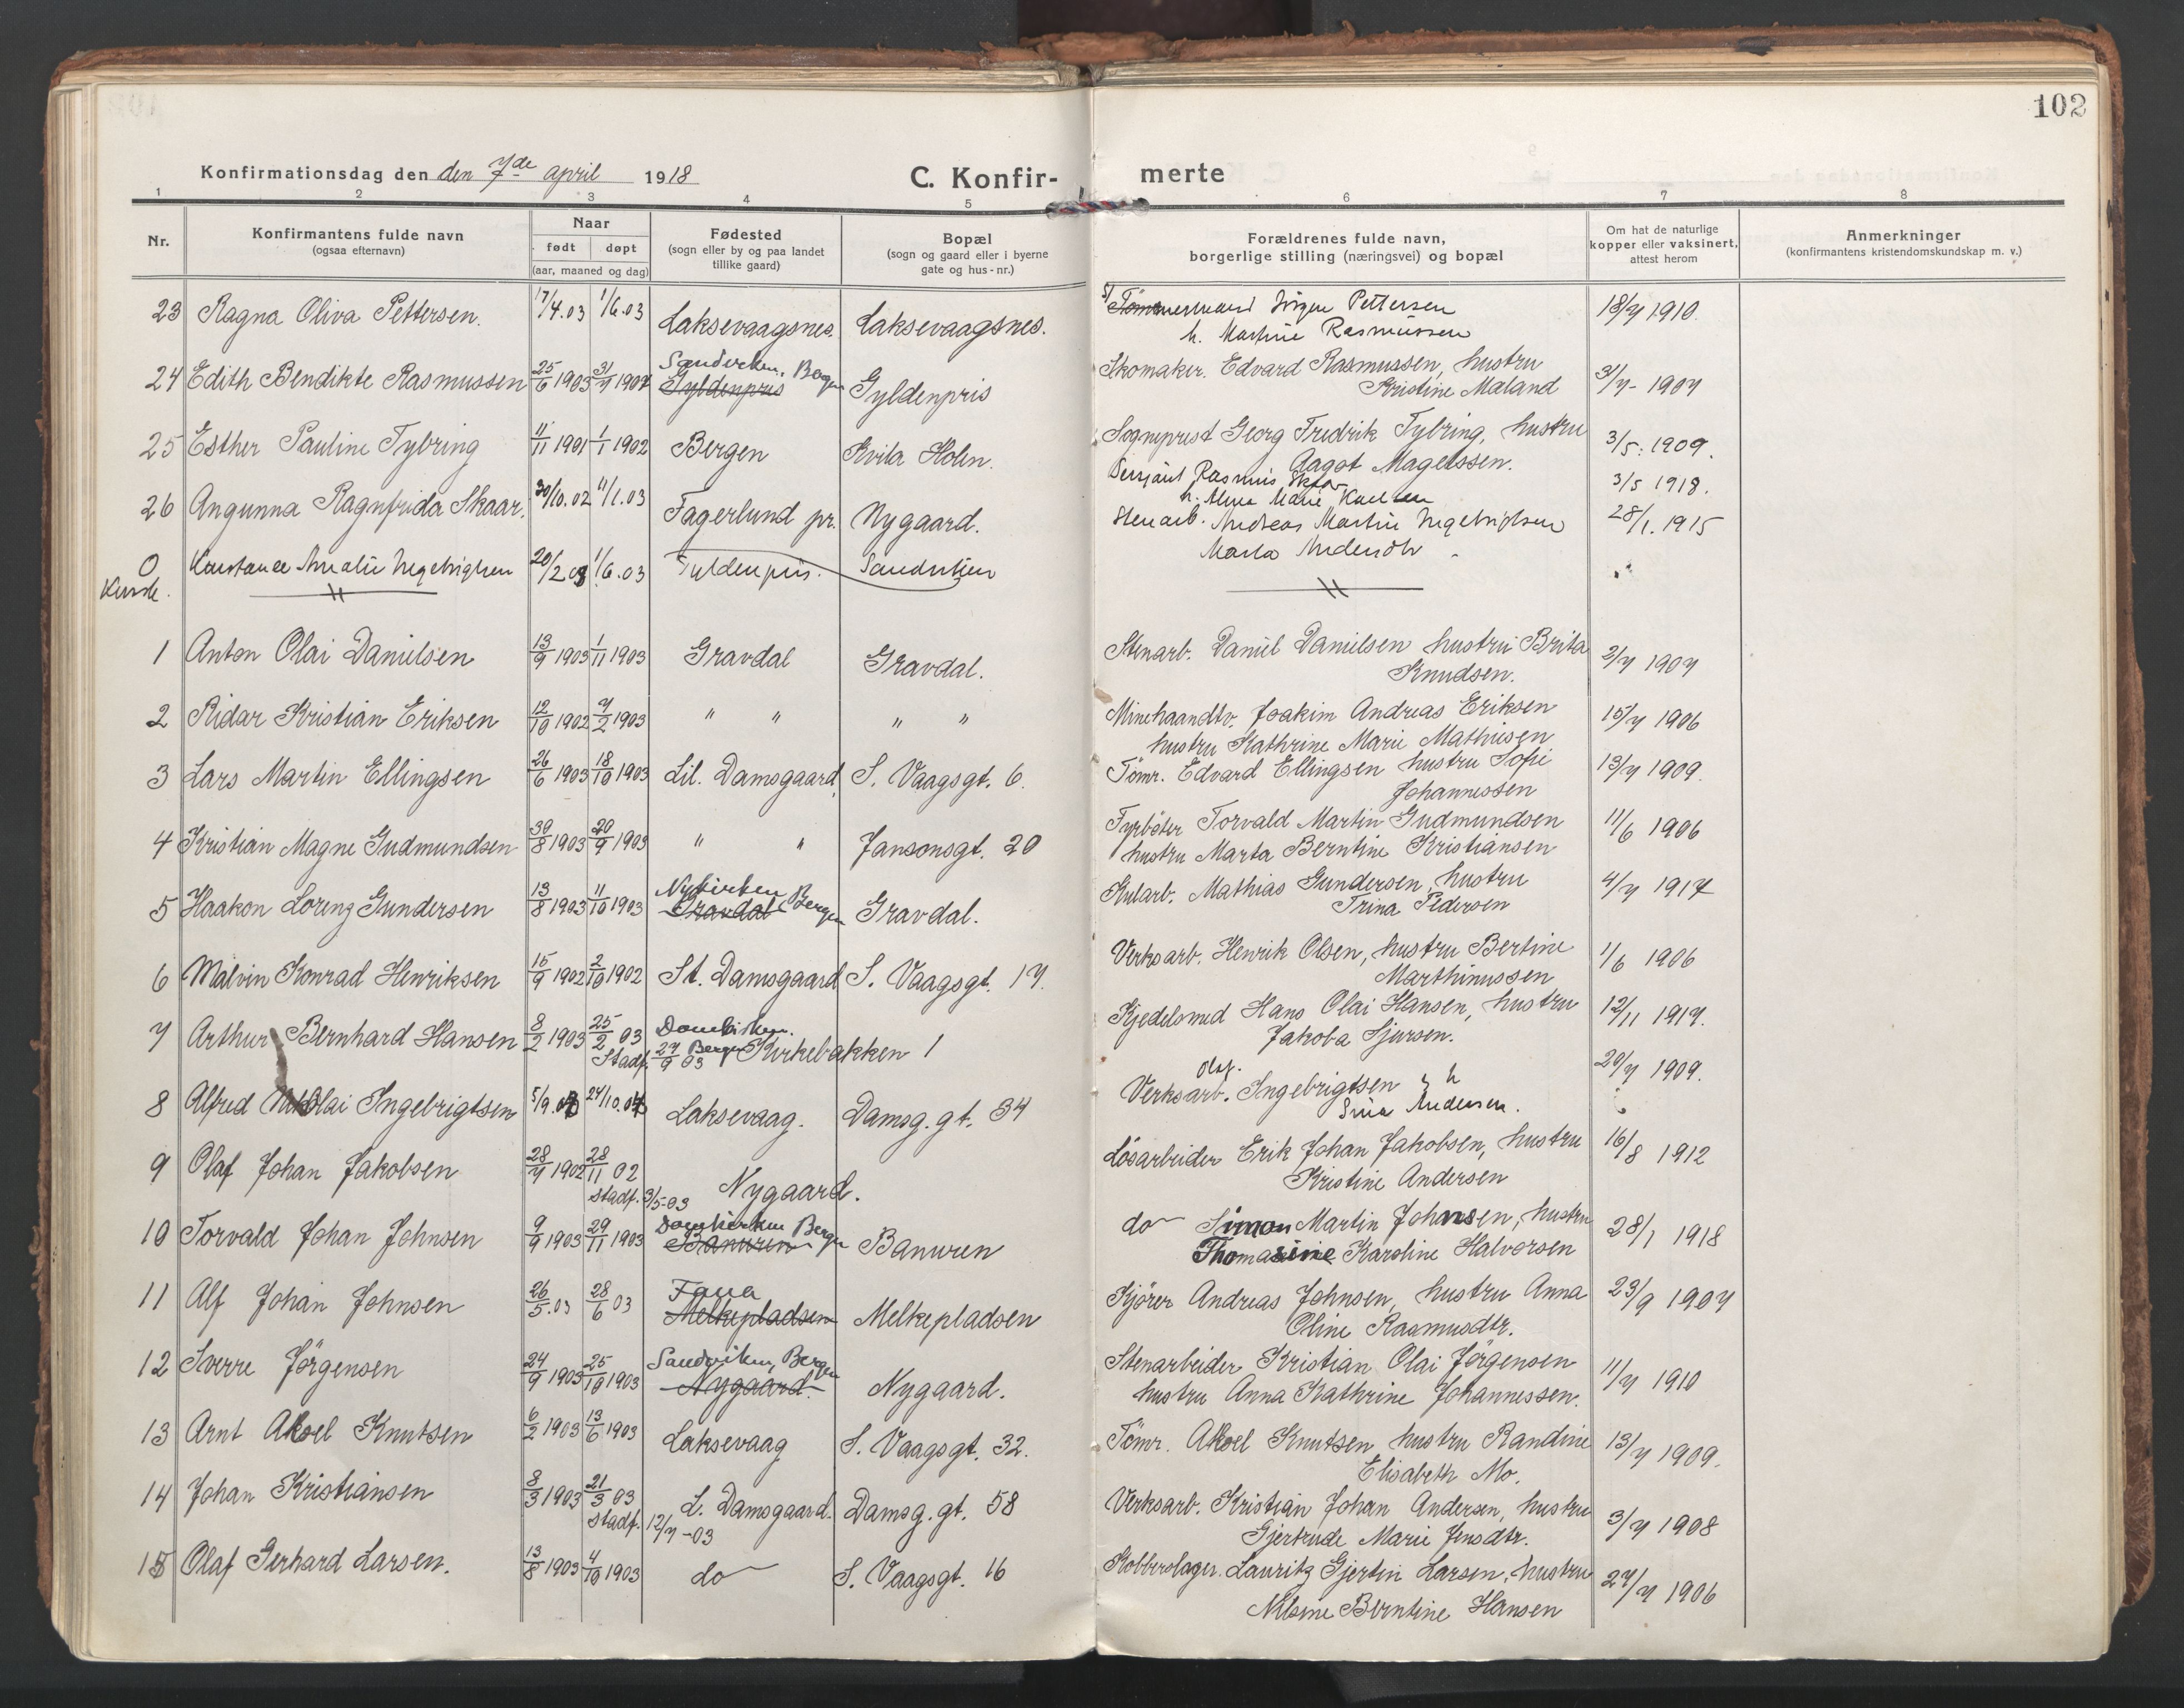 102
Konfirmationsdag den den 7de april 1918 C. Konfir- merte
1 2 3 4 5 6 7 8
Nr.
Konfirmantens fulde navn
(ogsaa efternavn)
Naar
født døpt
(aar, maaned og dag)
Fødested
(sogn eller by og paa landet
tillike gaard)
Bopæl
(sogn og gaard eller i byerne
gate og hus-nr.)
Forældrenes fulde navn,
borgerlige stilling (næringsvei) og bopæl
Om hat de naturlige
kopper eller vaksinert,
attest herom
Anmerkninger
(konfirmantens kristendomskundskap m. v.)
23 Ragna Oliva Pettersen. 17/4.03 1/6.03 Laksevaagsnes. Laksevaagsnes. Tömmermand Jörgen Pettersen 18/7 1910.
h. Martine Rasmussen
Sandviken, Bergen
24 Edith Bendikte Rasmussen 25/6 1903 31/7 1904 Gyldenpris Gyldenpris Skomaker. Edvard Rasmussen, hustru 3/7- 1907
Kristine Maland
25 Esther Pauline Tybring 11/11 1901 1/1 1902 Bergen Kvita Holen. Sogneprest Georg Fredrik Tybring, hustru 3/5. 1909.
Aagot Magelssen.
26 Angunna Ragnfrida Skaar. 30/10.02 11/1.03 Fagerlund pr. Nygaard. Sersjant Rasmus Skaar 3/5 1918.
h. Alma Marie Karlsen
0 Konstance Amalie Ingebrigtsen 20/2 03 1/6.03 Gyldenpris. Sandviken Stenarb. Andreas Martin Ingebrigtsen 28/1. 1915
Marta Andersdtr
1 Anton Olai Danielsen 13/9 1903 1/11 1903 Gravdal Gravdal. Stenarb. Daniel Danielsen hustru Brita 2/7 1907
Knudsen.
2 Reidar Kristian Eriksen 12/10 1902 7/2 1903 " " " " Minehaandtv. Joakim Andreas Eriksen 15/7 1906
hustru Kathrine Marie Mathiesen
3 Lars Martin Ellingsen 26/6 1903 18/10 1903 Lil. Damsgaard. S. Vaagsgt. 6. Tömr. Edvard Ellingsen hustru Sofie 13/7 1909.
Johannessen
4 Kristian Magne Gudmundsen 30/8 1903 20/9 1903 " " Jansonsgt. 20 Fyrböter Torvald Martin Gudmundsen 11/6 1906
hustru Marta Berntine Kristiansen
Nykirken Bergen
5 Haakon Lorenz Gundersen 13/8 1903 11/10 1903 Gravdal Gravdal. Kularb. Mathias Gundersen, hustru 4/7 1917
Trina Pedersen
6 Malvin Konrad Henriksen 15/9 1902 2/10 1902 St. Damsgaard S. Vaagsgt. 17. Verksarb. Henrik Olsen, hustru Bertine 1/6 1906
Marthinussen
Domkirken.
7 Arthur Bernhard Hansen 8/2 1903 25/2 03 Bergen Kirkebakken 1 Kjedelsmed Hans Olai Hansen, hustru 12/11 1917.
Stadf. 27/9 03 Jakoba Sjursen.
Olaf.
8 Alfred Nikolai Ingebrigtsen 5/9.03 24/10.03 Laksevaag. Damsg. gt. 34 Verksarb. Ingebrigtsen, h 20/7 1909.
Sina Andersen.
9 Olaf Johan Jakobsen 28/7 1902 28/11 02 Nygaard. Lösarbeider Erik Johan Jakobsen, hustru 16/8 1912
Stadf. 3/5-03 Kristine Andersen
Domkirken Bergen
10 Torvald Johan Johnsen 9/9 1903 29/11 1903 Banuren Banuren do Simon Martin Johansen, hustru 28/1 1918
Thomasine Karoline Halvorsen
Fana
11 Alf Johan Johnsen 26/5.03 28/6 03 Melkepladsen Melkepladsen Kjörer Andreas Johnsen, hustru Anna 23/9 1907
Oline Rasmusdtr.
Sandviken, Bergen
12 Sverre Jörgensen 24/9 1903 25/10 1903 Nygaard. Nygaard. Stenarbeider Kristian Olai Jörgensen 11/7 1910
hustru Anna Kathrine Johannessen.
13 Arnt Aksel Knutsen 6/2 1903 13/6 1903 Laksevaag S. Vaagsgt. 32. Tömr. Aksel Knutsen, hustru Randine 13/7 1909.
Elisabeth Mo.
14 Johan Kristiansen 8/3 1903 21/3 03 L. Damsgaard. Damsg. gt. 58 Verksarb. Kristian Johan Andersen, hustru 3/7 1908
Stadf. 12/7-03 Gjertrude Marie Jensdtr.
15 Olaf Gerhard Larsen. 13/8 1903 4/10 1903 do S. Vaagsgt. 16 Kobberslager. Lauritz Gjertin Larsen, hustru 27/7 1906
Nilsine Berntine Hansen